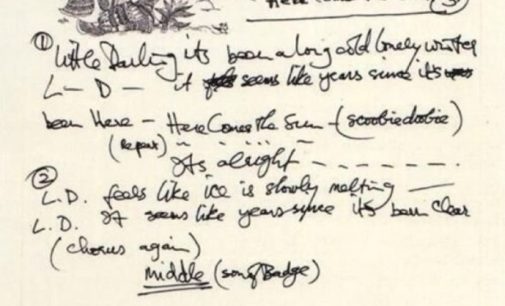 Here Comes The Sun ③
① Little Darling its been a long cold lonely winter
L— D— it seems like years since it's
been Here — Here Comes The Sun — (scoobiedoobie)
(repeat)
Its alright - - - - - - -
② 
L.D. feels like ice is slowly melting —
L.D. It seems like years since it's been Clear
(chorus again)
middle (song/Badge)